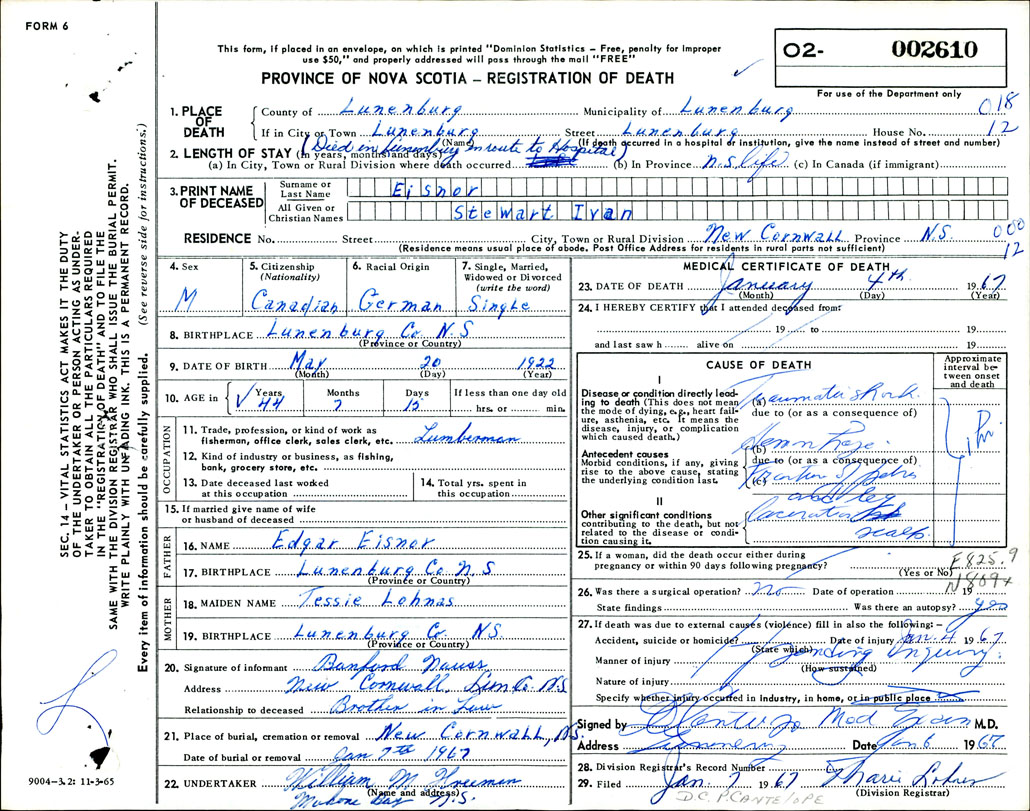 FORM 6
This form, if placed in an envelope, on which is printed "Dominion Statistics – Free, penalty for improper
use $50," and properly addressed will pass through the mail "FREE"
PROVINCE OF NOVA SCOTIA – REGISTRATION OF DEATH
02- 002610
For use of the Department only
1. PLACE OF DEATH County of Lunenburg Municipality of Lunenburg 018
If in City or Town Lunenburg Street Lunenburg House No. 12
(Name) (If death occurred in a hospital or institution, give the name instead of street and number)
(Died in Lunenburg enroute to Hospital)
2. LENGTH OF STAY (In years, months and days)
(a) In City, Town or Rural Division where death occurred (b) In Province N.S. life (c) In Canada (if immigrant)
3. PRINT NAME OF DECEASED Surname or Last Name Eisnor
All Given or Christian Names Stewart Ivan
RESIDENCE No. Street City, Town or Rural Division New Cornwall Province N.S. 000
(Residence means usual place of abode. Post Office Address for residents in rural parts not sufficient) 12
4. Sex M
5. Citizenship (Nationality) Canadian
6. Racial Origin German
7. Single, Married, Widowed or Divorced (write the word) Single
8. BIRTHPLACE Lunenburg Co. N.S
(Province or Country)
9. DATE OF BIRTH May 20 1922
(Month) (Day) (Year)
10. AGE in Years 44 Months 7 Days 15 If less than one day old
hrs. or min.
OCCUPATION
11. Trade, profession, or kind of work as
fisherman, office clerk, sales clerk, etc. Lumberman
12. Kind of industry or business, as fishing,
bank, grocery store, etc.
13. Date deceased last worked
at this occupation
14. Total yrs. spent in
this occupation
15. If married give name of wife
or husband of deceased
FATHER
16. NAME Edgar Eisnor
17. BIRTHPLACE Lunenburg Co N.S
(Province or Country)
MOTHER
18. MAIDEN NAME Tessie Lohnas
19. BIRTHPLACE Lunenburg Co. N.S.
(Province or Country)
20. Signature of informant Banford Nauss
Address New Cornwall, Lun Co. N.S
Relationship to deceased Brother in Law
21. Place of burial, cremation or removal New Cornwall, N.S.
Date of burial or removal Jan 7th 1967
22. UNDERTAKER William M
(Name and address)
Mahone Bay N.S.
MEDICAL CERTIFICATE OF DEATH
23. DATE OF DEATH January 4th 1967
(Month) (Day) (Year)
24. I HEREBY CERTIFY that I attended deceased from:
19 to 19
and last saw h alive on 19
CAUSE OF DEATH
Approximate interval between onset and death
I
Disease or condition directly leading to death (This does not mean the mode of dying, e.g., heart failure, asthenia, etc. It means the disease, injury, or complication which caused death.)
(a) Traumatic shock
due to (or as a consequence of)
Antecedent causes
Morbid conditions, if any, giving rise to the above cause, stating the underlying condition last.
(b)
due to (or as a consequence of)
(c) pelvis
and leg
II
Other significant conditions
contributing to the death, but not related to the disease or condition causing it.
laceration
scalp.
1 hr.
25. If a woman, did the death occur either during
pregnancy or within 90 days following pregnancy?
(Yes or No)
E825.9
N809+
26. Was there a surgical operation? no Date of operation 19
State findings Was there an autopsy? yes
27. If death was due to external causes (violence) fill in also the following: –
Accident, suicide or homicide? Date of injury Jan. 4 1967
(State which)
Manner of injury Pending Inquiry.
(How sustained)
Nature of injury
Specify whether injury occurred in industry, in home, or in public place
Signed by Med Exam M.D.
Address Lunenburg Date Jan 6 1967
28. Division Registrar's Record Number
29. Filed Jan. 7 1967
(Division Registrar)
D.C.P. CANTELOPE
SEC. 14 – VITAL STATISTICS ACT MAKES IT THE DUTY
OF THE UNDERTAKER OR PERSON ACTING AS UNDER-
TAKER TO OBTAIN ALL THE PARTICULARS REQUIRED
IN THE "REGISTRATION OF DEATH" AND TO FILE THE
SAME WITH THE DIVISION REGISTRAR WHO SHALL ISSUE THE BURIAL PERMIT.
WRITE PLAINLY WITH UNFADING INK. THIS IS A PERMANENT RECORD.
Every item of information should be carefully supplied. (See reverse side for instructions.)
9004-3.2: 11-3-65